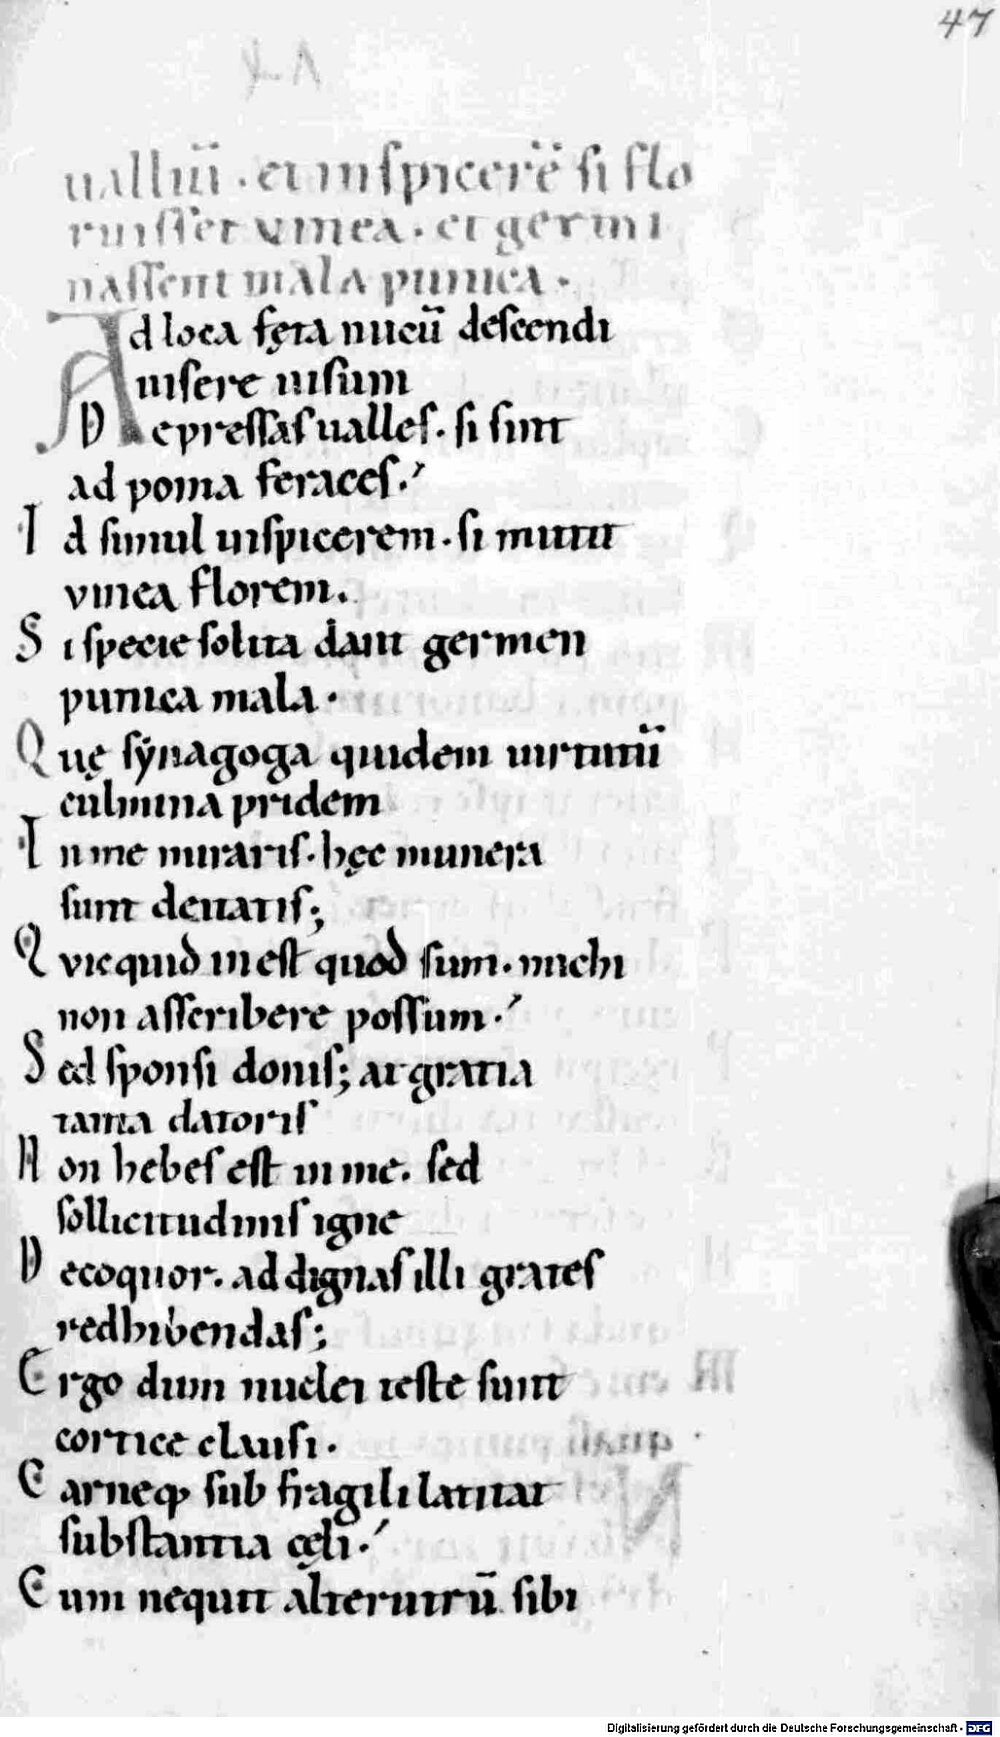 47
valliū. et inspicerē si flo
ruisset vinea. et germi
nassent mala punica.
Ad loca fęta nucū descendi
uisere uisum
Depressas ualles. si sint
ad poma feraces.
Id simul inspicerem. si mittit
vinea florem.
Si specie solita dant germen
punica mala.
Quę synagoga quidem uirtutū
culmina pridem
In me miraris. hęc munera
sunt deitatis;
Quicquid in est quod sum. michi
non asscribere possum.
Sed sponsi donis; at gratia
tanta datoris
Non hebes est in me. sed
sollicitudinis igne
Decoquor. ad dignas illi grates
redhibendas;
Ergo dum nuclei teste sunt
cortice clausi.
Carneq; sub fragili latitat
substantia cęli.
Cum nequit alterutrū sibi
Digitalisierung gefördert durch die Deutsche Forschungsgemeinschaft - DFG